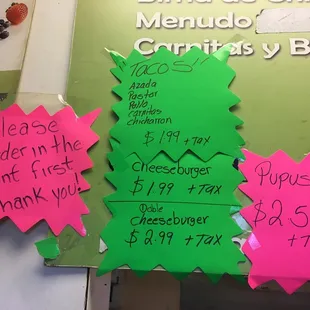 Menudo
Carnitas y B
Please
der in the
nt first
hank you!
TACOS!!
Azada
Pastor
Pollo
carnitas
chicharron
$1.99 + TAX
Cheeseburger
$1.99 + TAX
Doble
Cheeseburger
$2.99 + TAX
Pupus
$2.5
+ T